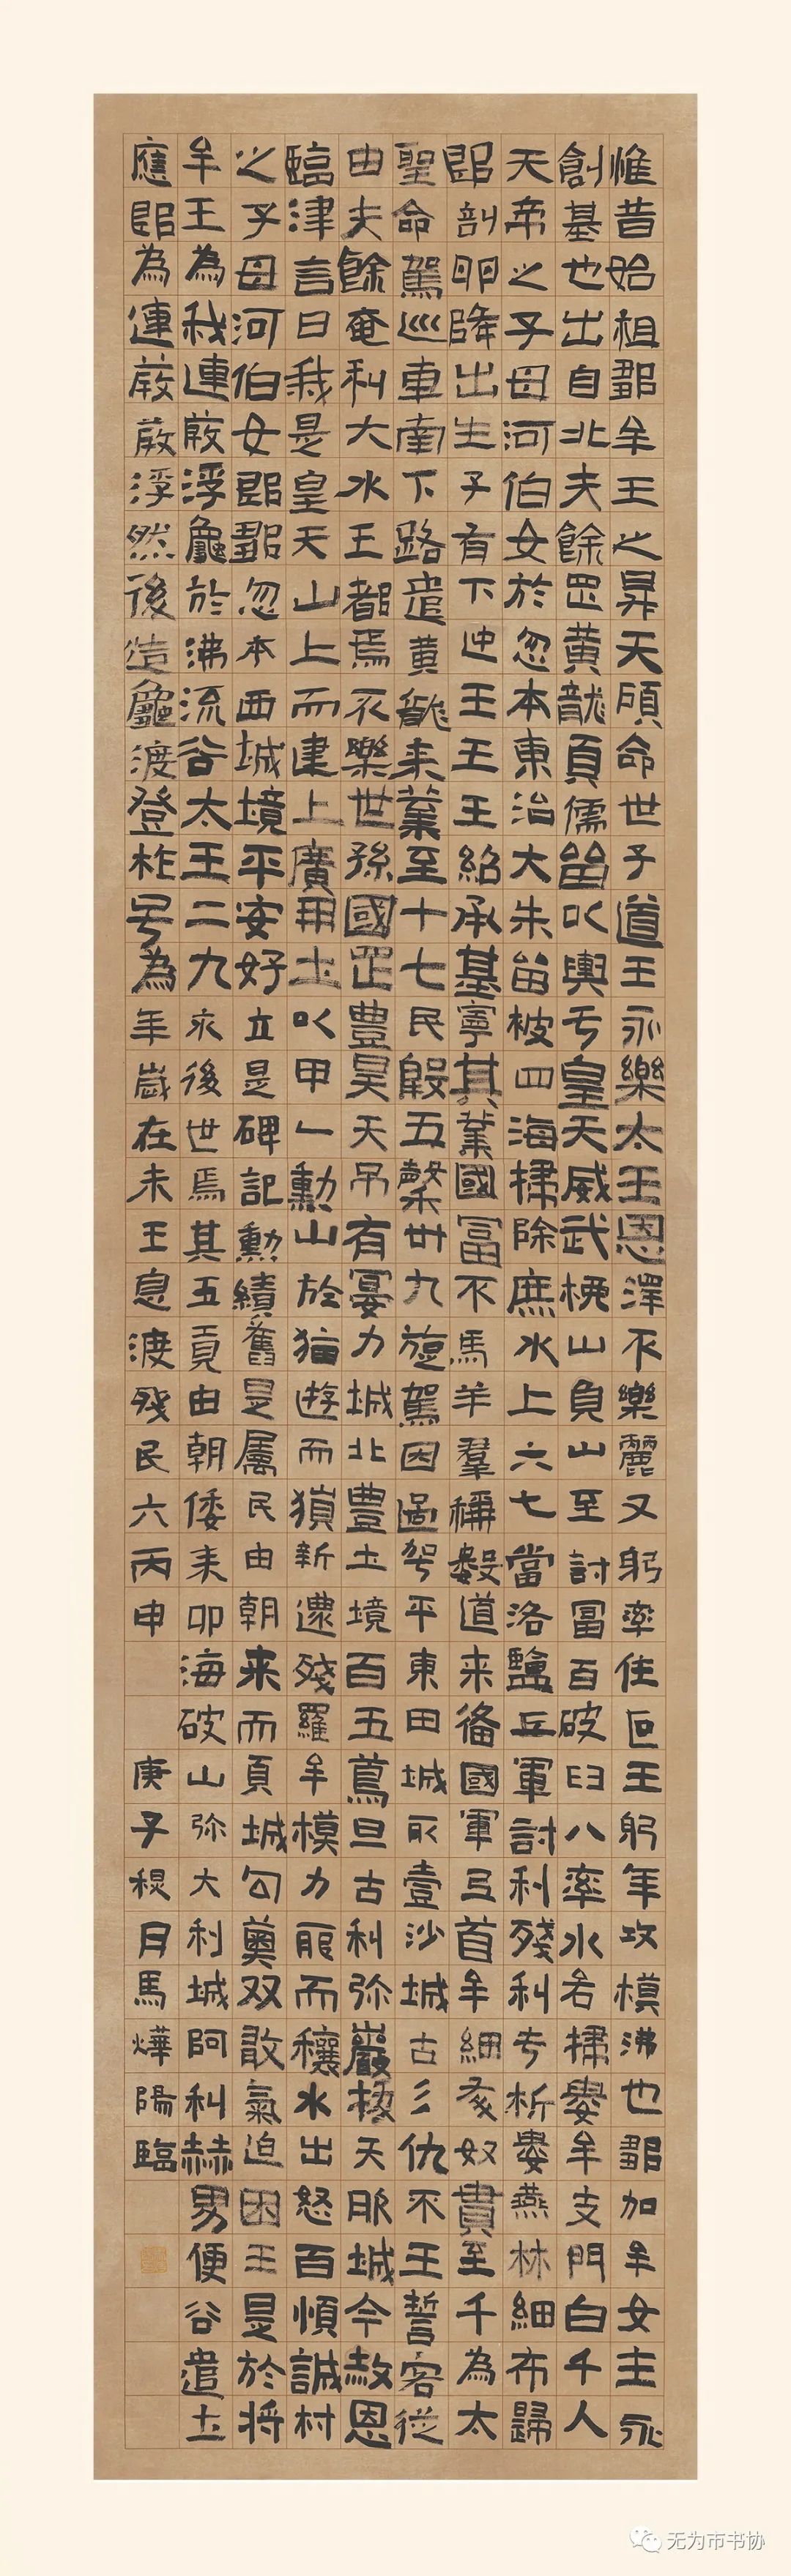 惟昔始祖鄒牟王之昇天顧命世子道王永樂太王恩澤不樂麗又躬率住叵王躬年攻模沸也鄒加牟女主永
創基也出自北夫餘罡黃龍頁儒留以輿亏皇天威武山負山至討冨百破臼八率水若掃婁牟支門白千人
天帝之子母河伯女於忽本東治大朱留柀四海掃除庶水上六七當洛鹽丘軍討利殘利専析婁燕林細布歸
即剖卵降出生子有下迚王王王紹承基寧其業國冨不馬羊羣稱數道来備國軍首牟細奴貴至千為太
聖命駕巡車南下路遣黃龍来業至十七民殷五槃卅九旋駕因過平東田城壹沙城古彡仇不王誓客從
由夫餘奄利大水王都焉不樂世孫國罡豊昊天弔有宴力城北豊土境百五蔦旦古利弥巖拔天那城今赦恩
臨津言曰我是皇天山上而建上廣開土以甲一勳山於猫遊而新遝殘羅牟模力能而穰水出怒百愼誠村
之子母河伯女郎鄒忽本西城境平安好立是碑記勳績舊是属民由朝来而頁城勾奠双敢氣迫困王是於将
牟王為我連葭浮龜於沸流谷太王二九永後世焉其五貢由朝倭来卯海破山弥大利城阿利赫男便谷遣土
應即為連葭葭浮然後造龜渡登祚号為年歲在未王息渡殘民六丙申 庚子月馬燁陽臨
无为市书协